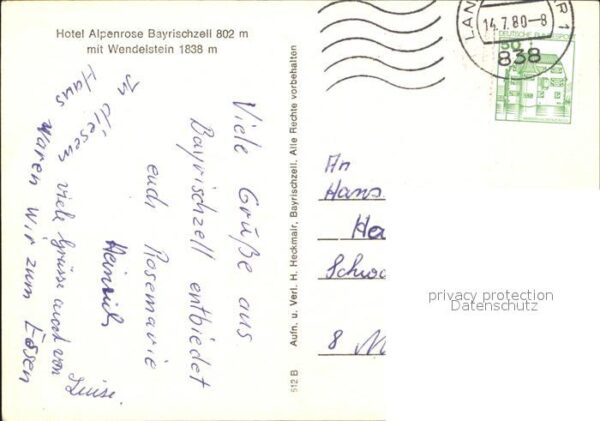 Hotel Alpenrose Bayrischzell 802 m
mit Wendelstein 1838 m
Viele Grüße aus
Bayrischzell entbiedet
euch Rosemarie
Heinrich
viele Grüsse auch von
Luise.
In diesem Haus
waren wir zum Essen
Aufn. u. Verl. H. Heckmair, Bayrischzell, Alle Rechte vorbehalten
512 B
LAN R 1
14.7.80-8
838
DEUTSCHE BUNDESPOST
50
An
Hans
8 M
privacy protection
Datenschutz